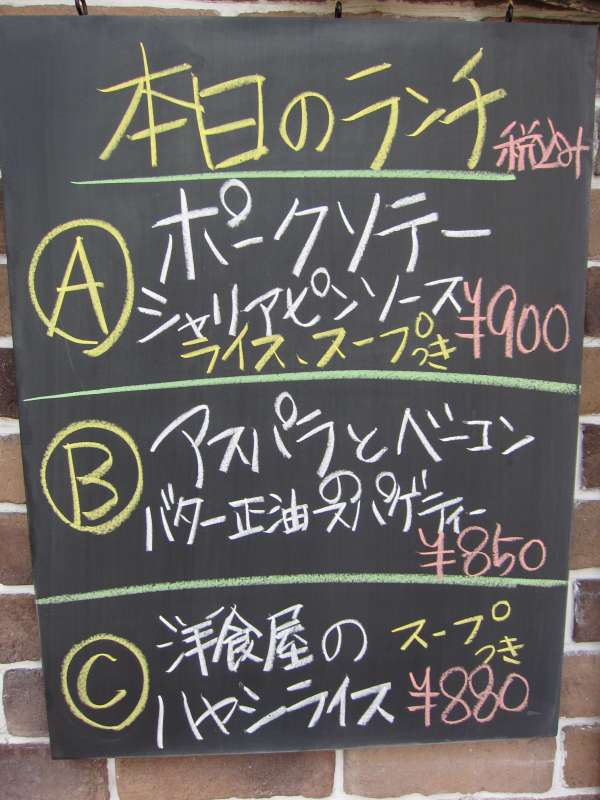 本日のランチ 税込み
A ポークソテー
シャリアピンソース ¥900
ライス、スープつき
B アスパラとベーコンの
バター正油スパゲティー
¥850
C 洋食屋の スープつき
ハヤシライス ¥880